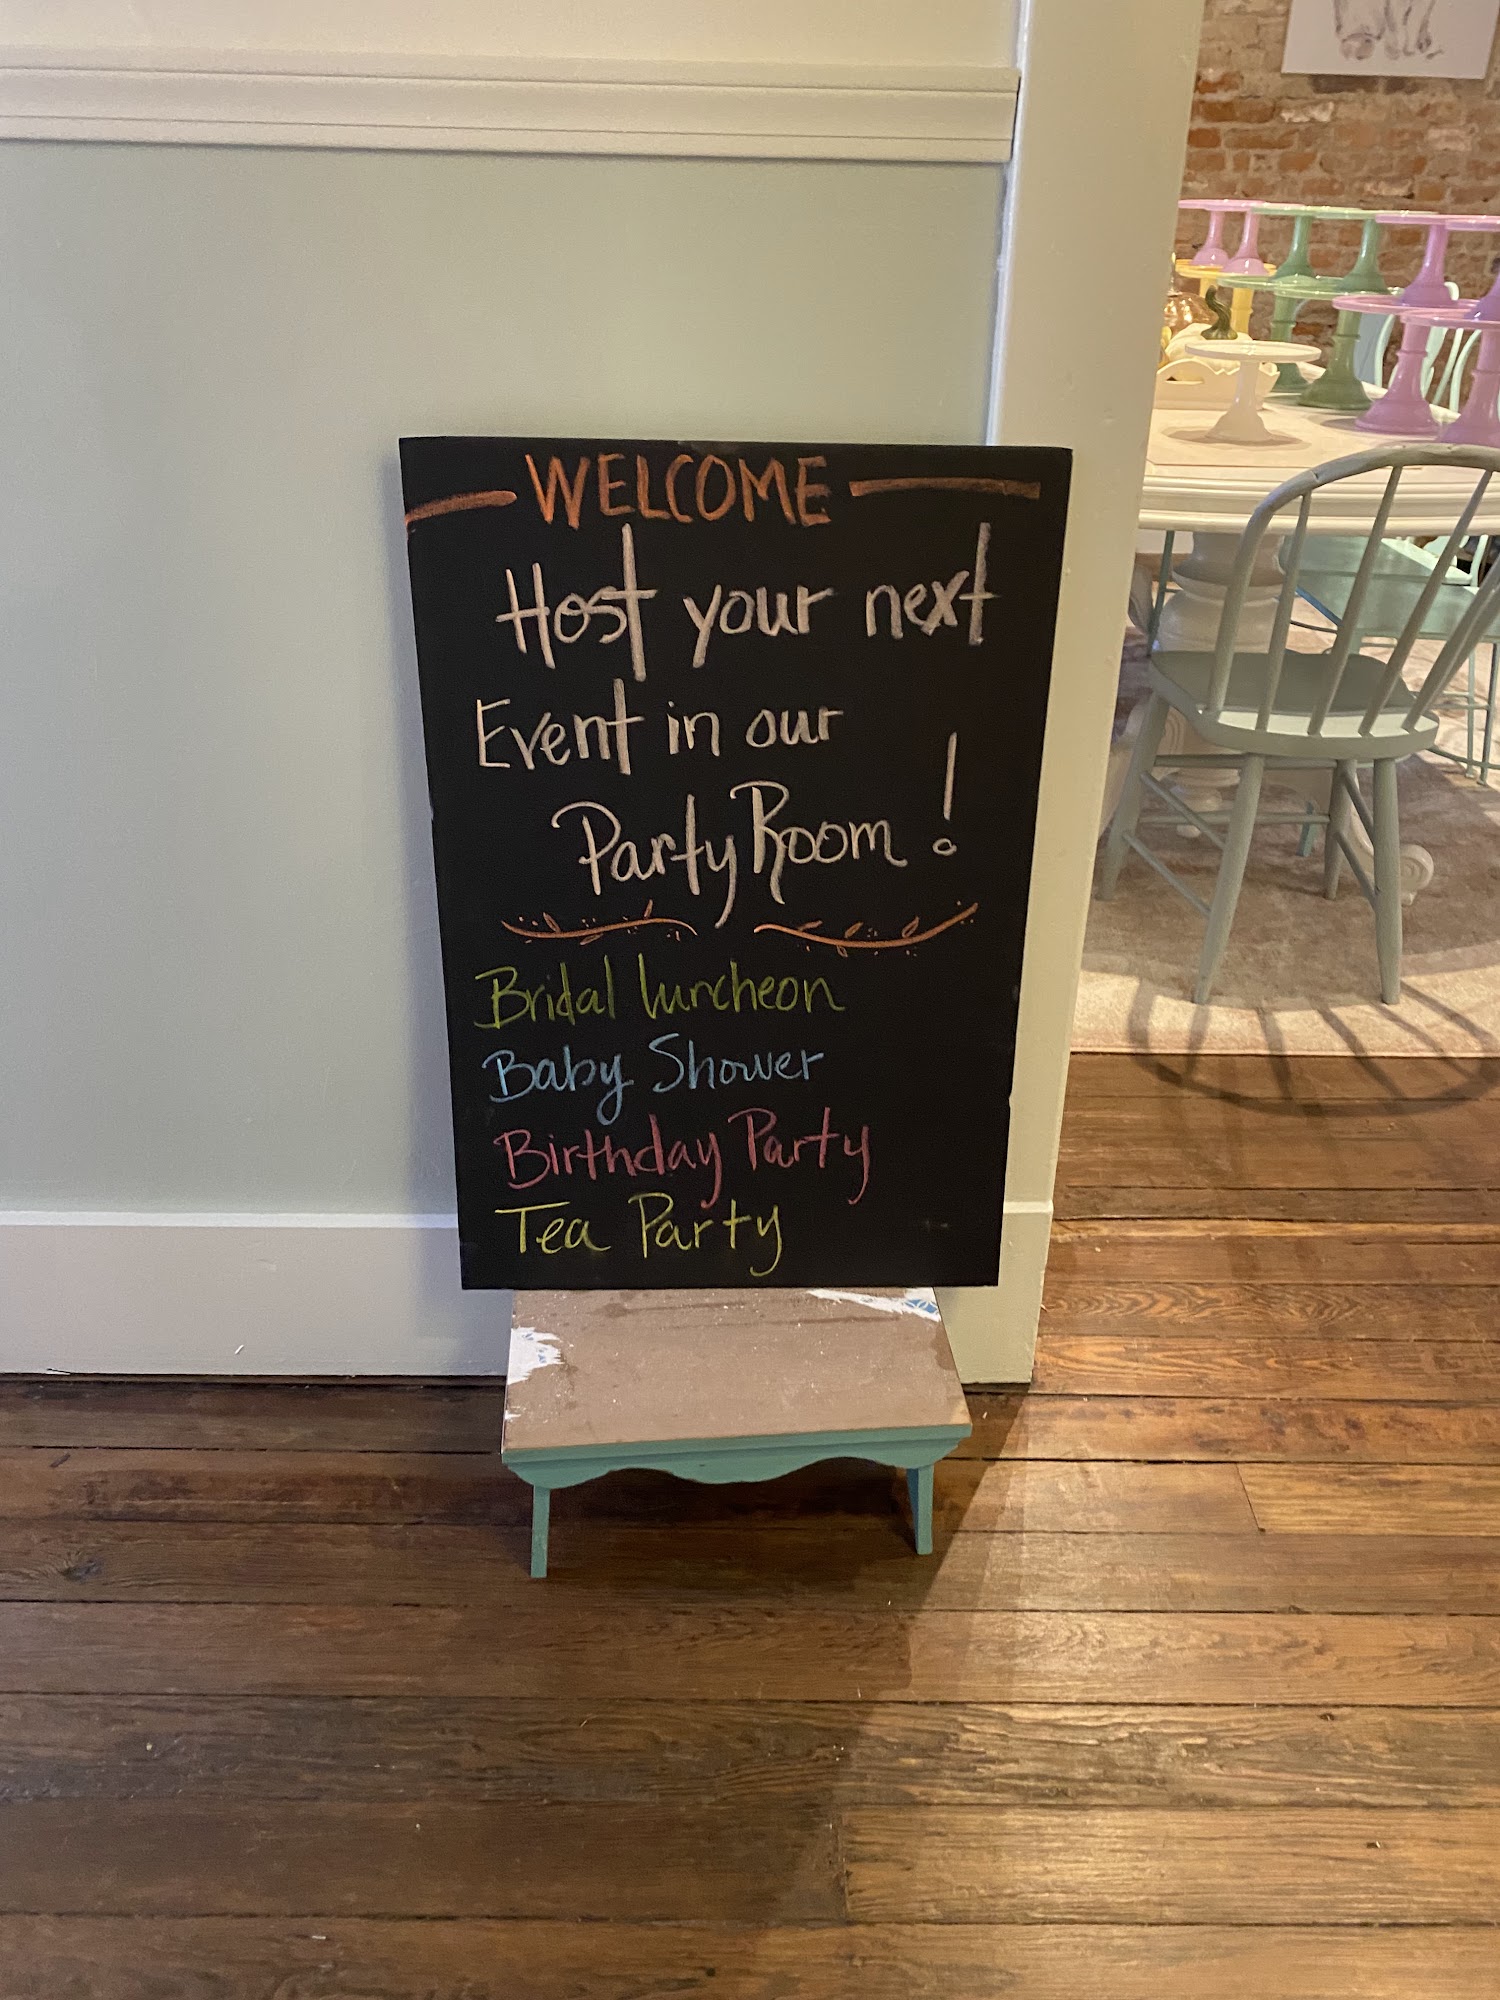 WELCOME
Host your next
Event in our
Party Room!
Bridal luncheon
Baby Shower
Birthday Party
Tea Party